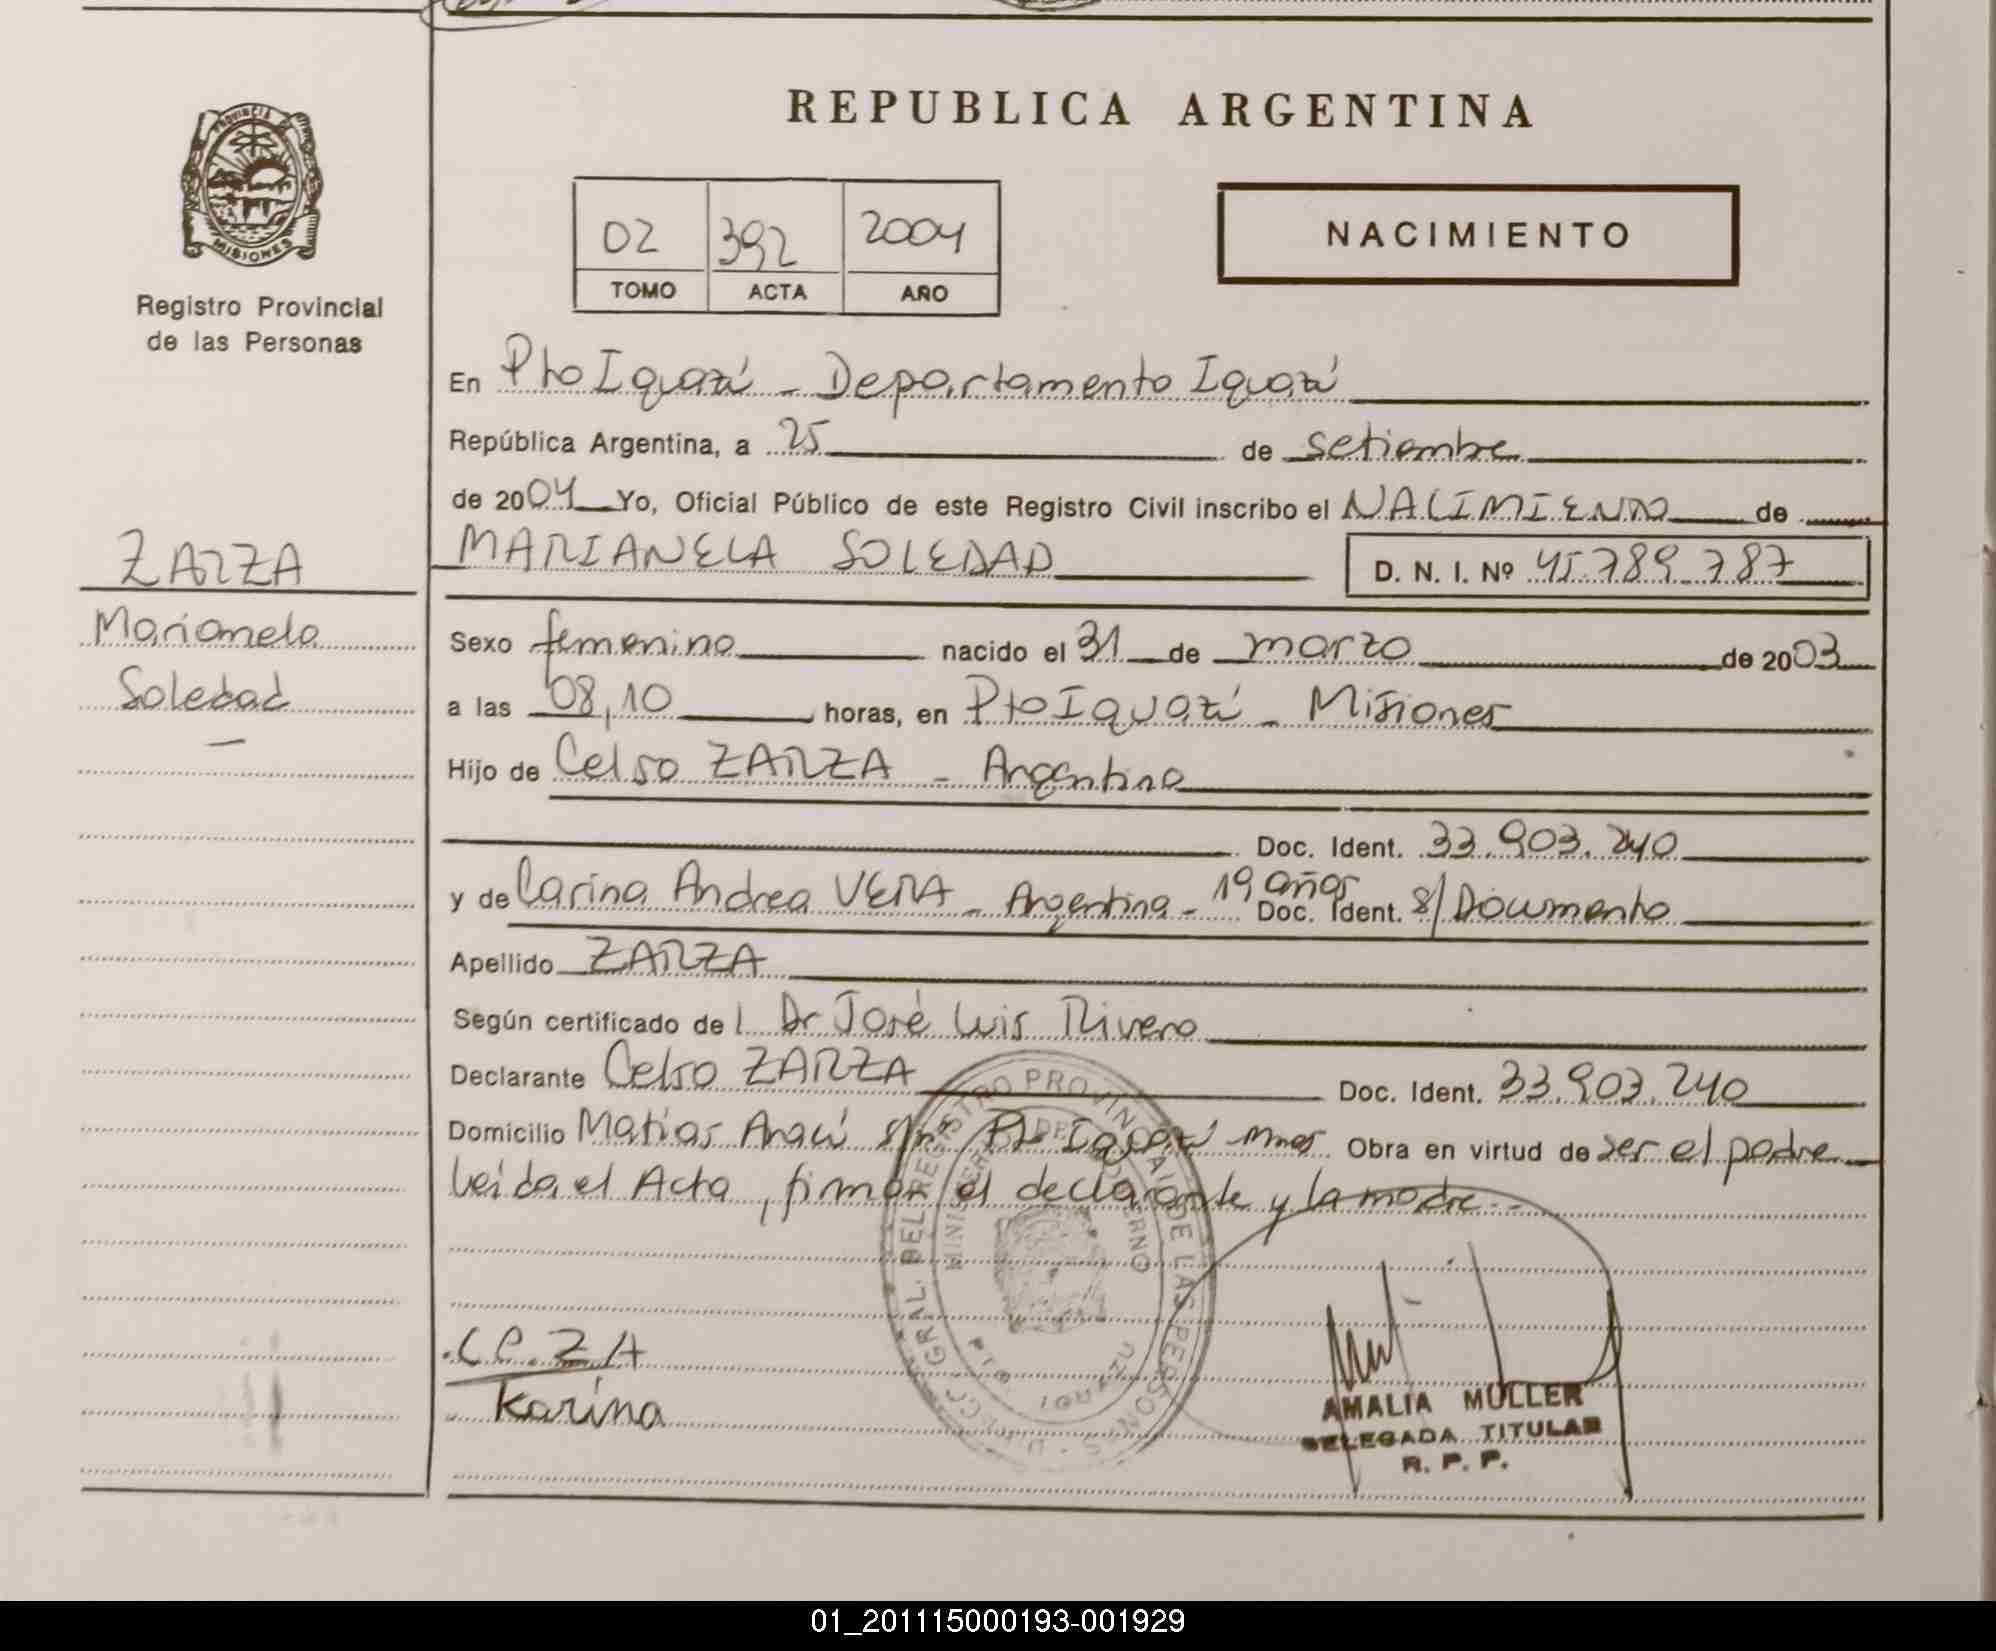 REPUBLICA ARGENTINA
PROVINCIA DE
MISIONES
Registro Provincial
de las Personas
02 392 2004
TOMO ACTA AÑO
NACIMIENTO
En Pto Iguazú - Departamento Iguazú
República Argentina, a 25 de setiembre
de 2004 Yo, Oficial Público de este Registro Civil inscribo el NACIMIENTO de
MARIANELA SOLEDAD D. N. I. Nº 45.789.787
ZARZA
Marianela
Soledad
Sexo femenino nacido el 31 de marzo de 2003
a las 08,10 horas, en Pto Iguazú - Misiones
Hijo de Celso ZARZA - Argentino
Doc. Ident. 33.903.240
y de Carina Andrea VERA - Argentina - 19 años Doc. Ident. s/Documento
Apellido ZARZA
Según certificado de l Dr José Luis Rivero
Declarante Celso ZARZA Doc. Ident. 33.903.240
Domicilio Matias s/nº Pto Iguazú Mnes Obra en virtud de ser el padre
Leida el Acta, firman el declarante y la madre.-
DIRECC. GRAL. DEL REGISTRO PROVINCIAL DE LAS PERSONAS
MINISTERIO DE GOBIERNO
PTO. IGUAZU
C P. Z A
Karina
AMALIA MULLER
DELEGADA TITULAR
R. P. P.
01_201115000193-001929